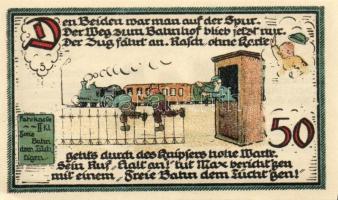 Den Beiden war man auf der Spur.
Der Weg zum Bahnhof blieb jetzt nur.
Der Zug fährt an. Rasch, ohne Karte,
Fahrkarte
II Kl.
Freie
Bahn
dem Tüch
tigen.
50
gehts durch des Knipsers hohe Warte.
Sein Ruf „Halt an!" tut Max berichtgen
mit einem „Freie Bahn dem Tücht'gen!"